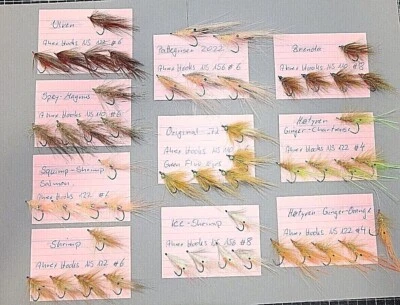 Ulven
Ahrex Hooks NS #6
Pattegrisen 2022
Ahrex Hooks NS 156 #6
Brenda
Ahrex Hooks NS 110 #8
Spey-Magnus
Ahrex Hooks NS 110 #8
Original
Ahrex Hooks NS 110
Green Flue Eyes
Ginger-Chartreuse
Ahrex Hooks NS 122 #4
Squimp-Shrimp
Salmon
Ahrex Hooks 122 #6
Ice-Shrimp
Ahrex Hooks NS 156 #8
Ginger-Orange
Ahrex Hooks NS 122 #4
Shrimp
Ahrex Hooks NS 122 #6